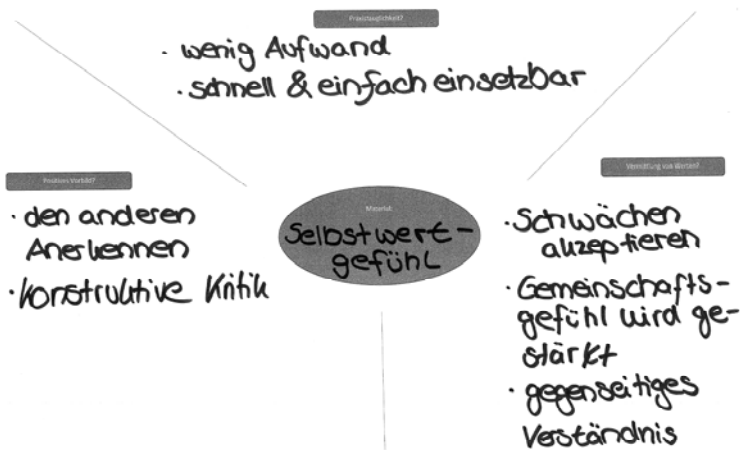 Praxistauglichkeit?
· wenig Aufwand
· schnell & einfach einsetzbar
Positives Vorbild?
· den anderen
Anerkennen
· konstruktive Kritik
Material:
Selbstwert-
gefühl
Vermittlung von Werten?
· Schwächen
akzeptieren
· Gemeinschafts-
gefühl wird ge-
stärkt
· gegenseitiges
Verständnis